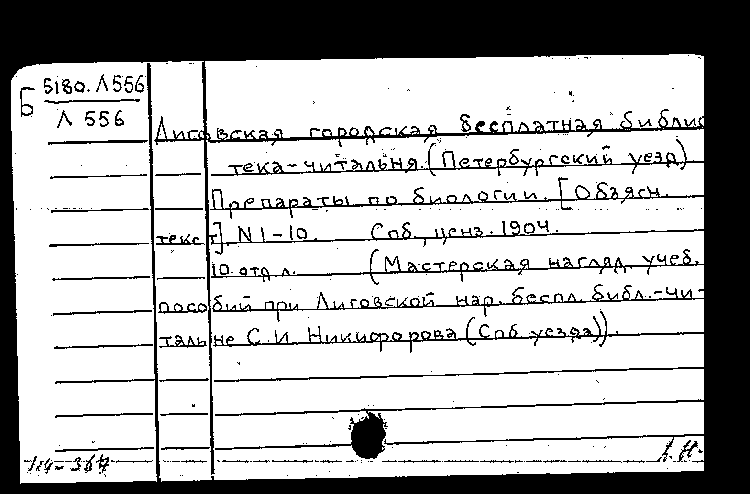 Б 5180.Л556
Л 556
Лиговская городская бесплатная библио
тека-читальня. (Петербургский уезд)
Препараты по биологии. [Объясн.
текст]. N 1-10. Спб., ценз. 1904.
10 отд. л. (Мастерская нагляд. учеб.
пособий при Лиговской нар. беспл. библ.-чи-
тальне С.И. Никифорова (Спб. уезда)).